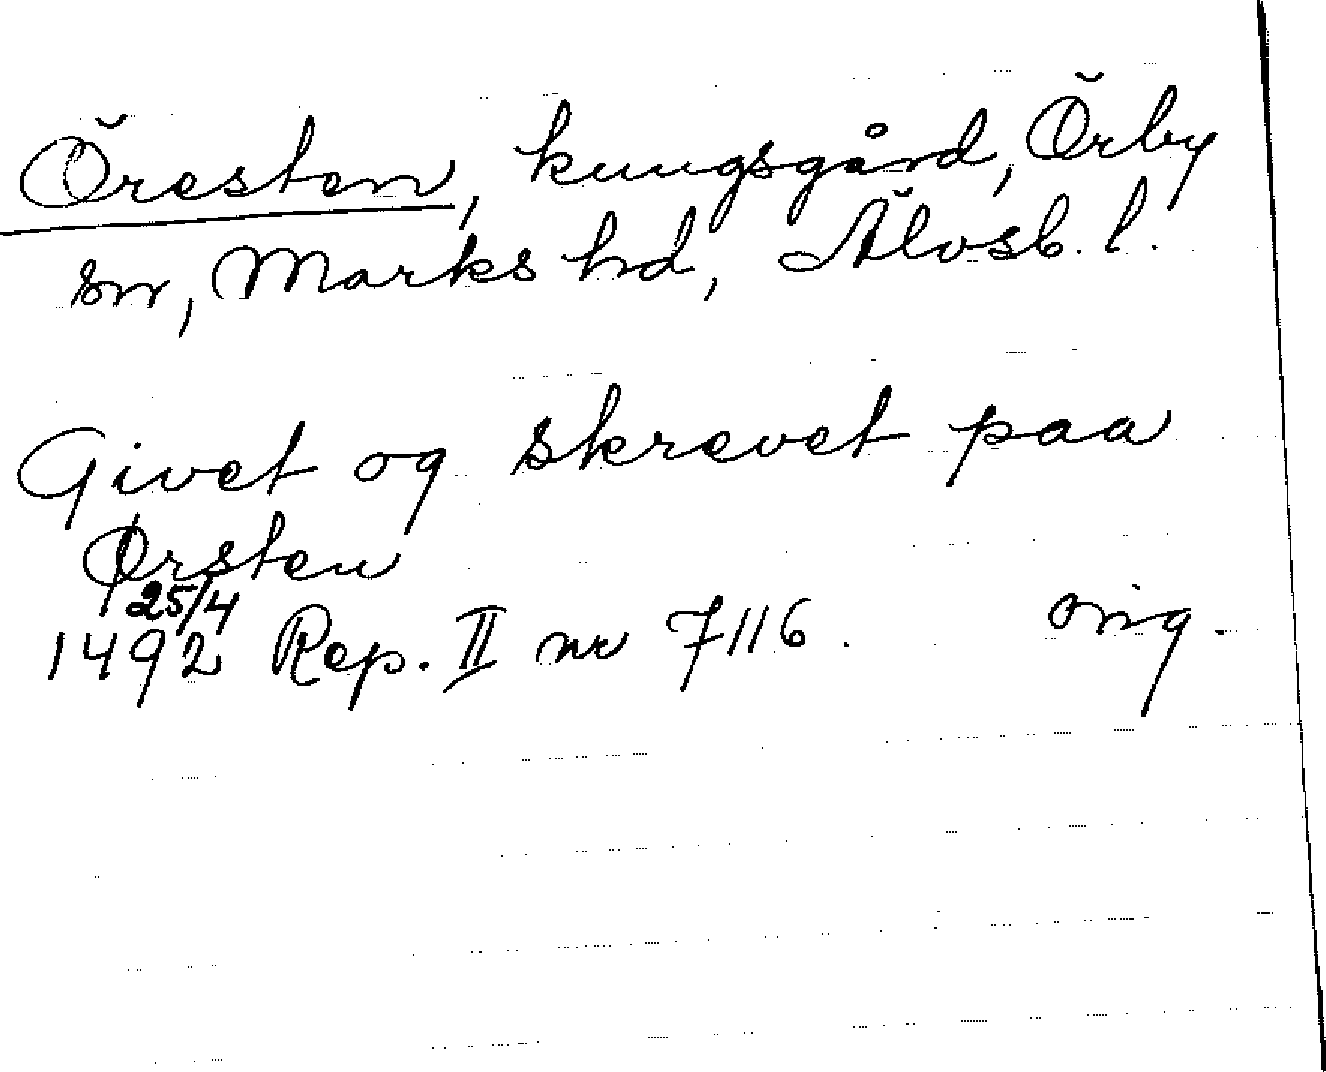 Öresten, kungsgård, Örby
sn, Marks hd, Älvsb. l.
Givet og skrevet paa
Ørsten
25/4
1492 Rep. II nr 7116. orig.